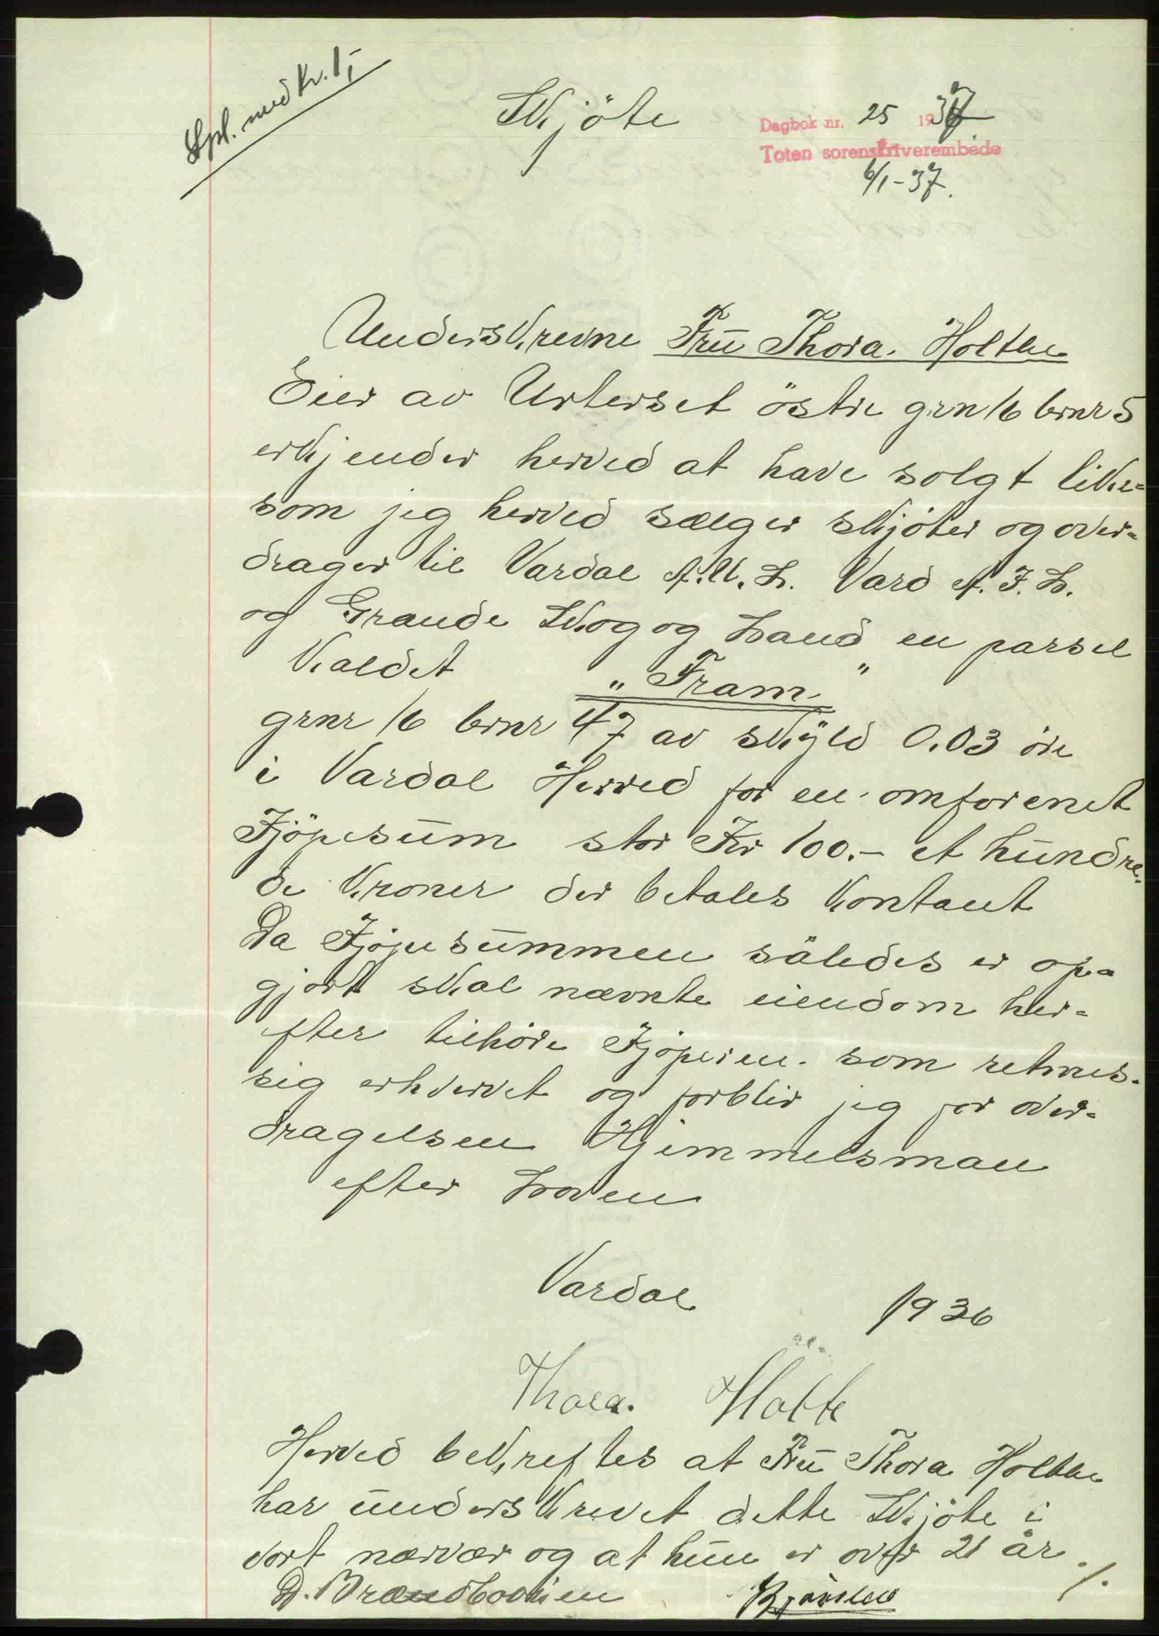 Stpl. med kr. 1,-
Skjöte
Dagbok nr. 25 1937
Toten sorenskriverembede
6/1-37.
Underskrevne Fru Thora. Holthe
Eier av Urterset östre grn 16 brnr 5
erkjender herved at have solgt like=
som jeg herved sælger skjöter og over=
drager til Vardal A.U.L. Vard A.I.L.
og Grande Skog og Land en parsel
kaldet „Fram."
grnr 16 brnr 47 av skyld 0.03 öre
i Vardal Herred for en omforenet
Kjöpesum stor Kr 100.- et hundre
de kroner der betales kontant
Da Kjöpesummen således er op=
gjort skal nævnte eiendom her=
efter tilhöre Kjöperen. som retmes.
sig erhvervet og forblir jeg for over=
dragelsen Hjemmelsman
efter Loven
Vardal 1936
Thora. Holthe
Herved bekreftes at Fru Thora Holthe
har underskrevet dette Skjöte i
vort nærvær og at hun er over 21 år
./.